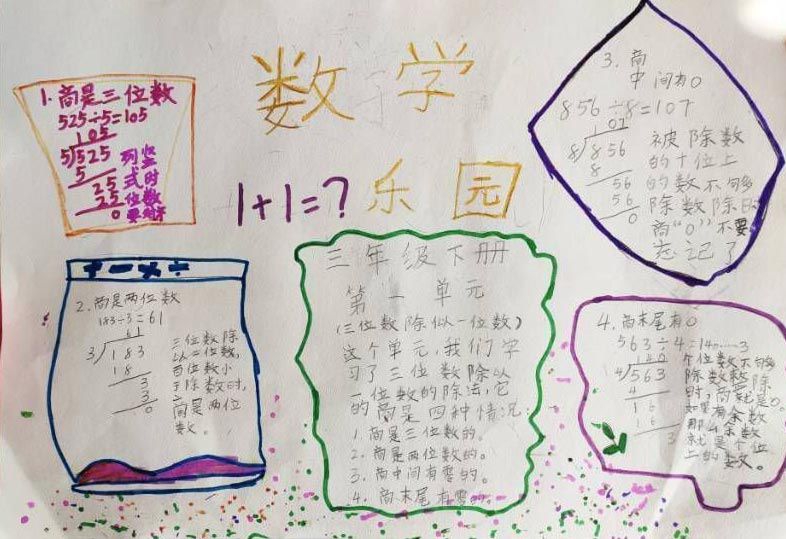 数学
1+1=?乐园
1.商是三位数
525÷5=105
105
5√525
5
25
25
0
列竖
式时
位数
要对齐
2.商是两位数
183÷3=61
61
3√183
18
3
3
0
三位数除
以一位数,
百位数小
于除数时,
商是两位
数。
三年级下册
第一单元
(三位数除以一位数)
这个单元,我们学
习了三位数除以
一位数的除法,它
的商是四种情况:
1.商是三位数的。
2.商是两位数的。
3.商中间有零的。
4.商末尾有零的
3.商
中间有0
856÷8=107
107
8√856
8
56
56
0
被除数
的十位上
的数不够
除数除时
商“0”不要
忘记了
4.商末尾有0
563÷4=140……3
140
4√563
4
16
16
3
个位数不够
除数除
时,商就是0。
如果有余数
那么余数
就是个位
上的数。